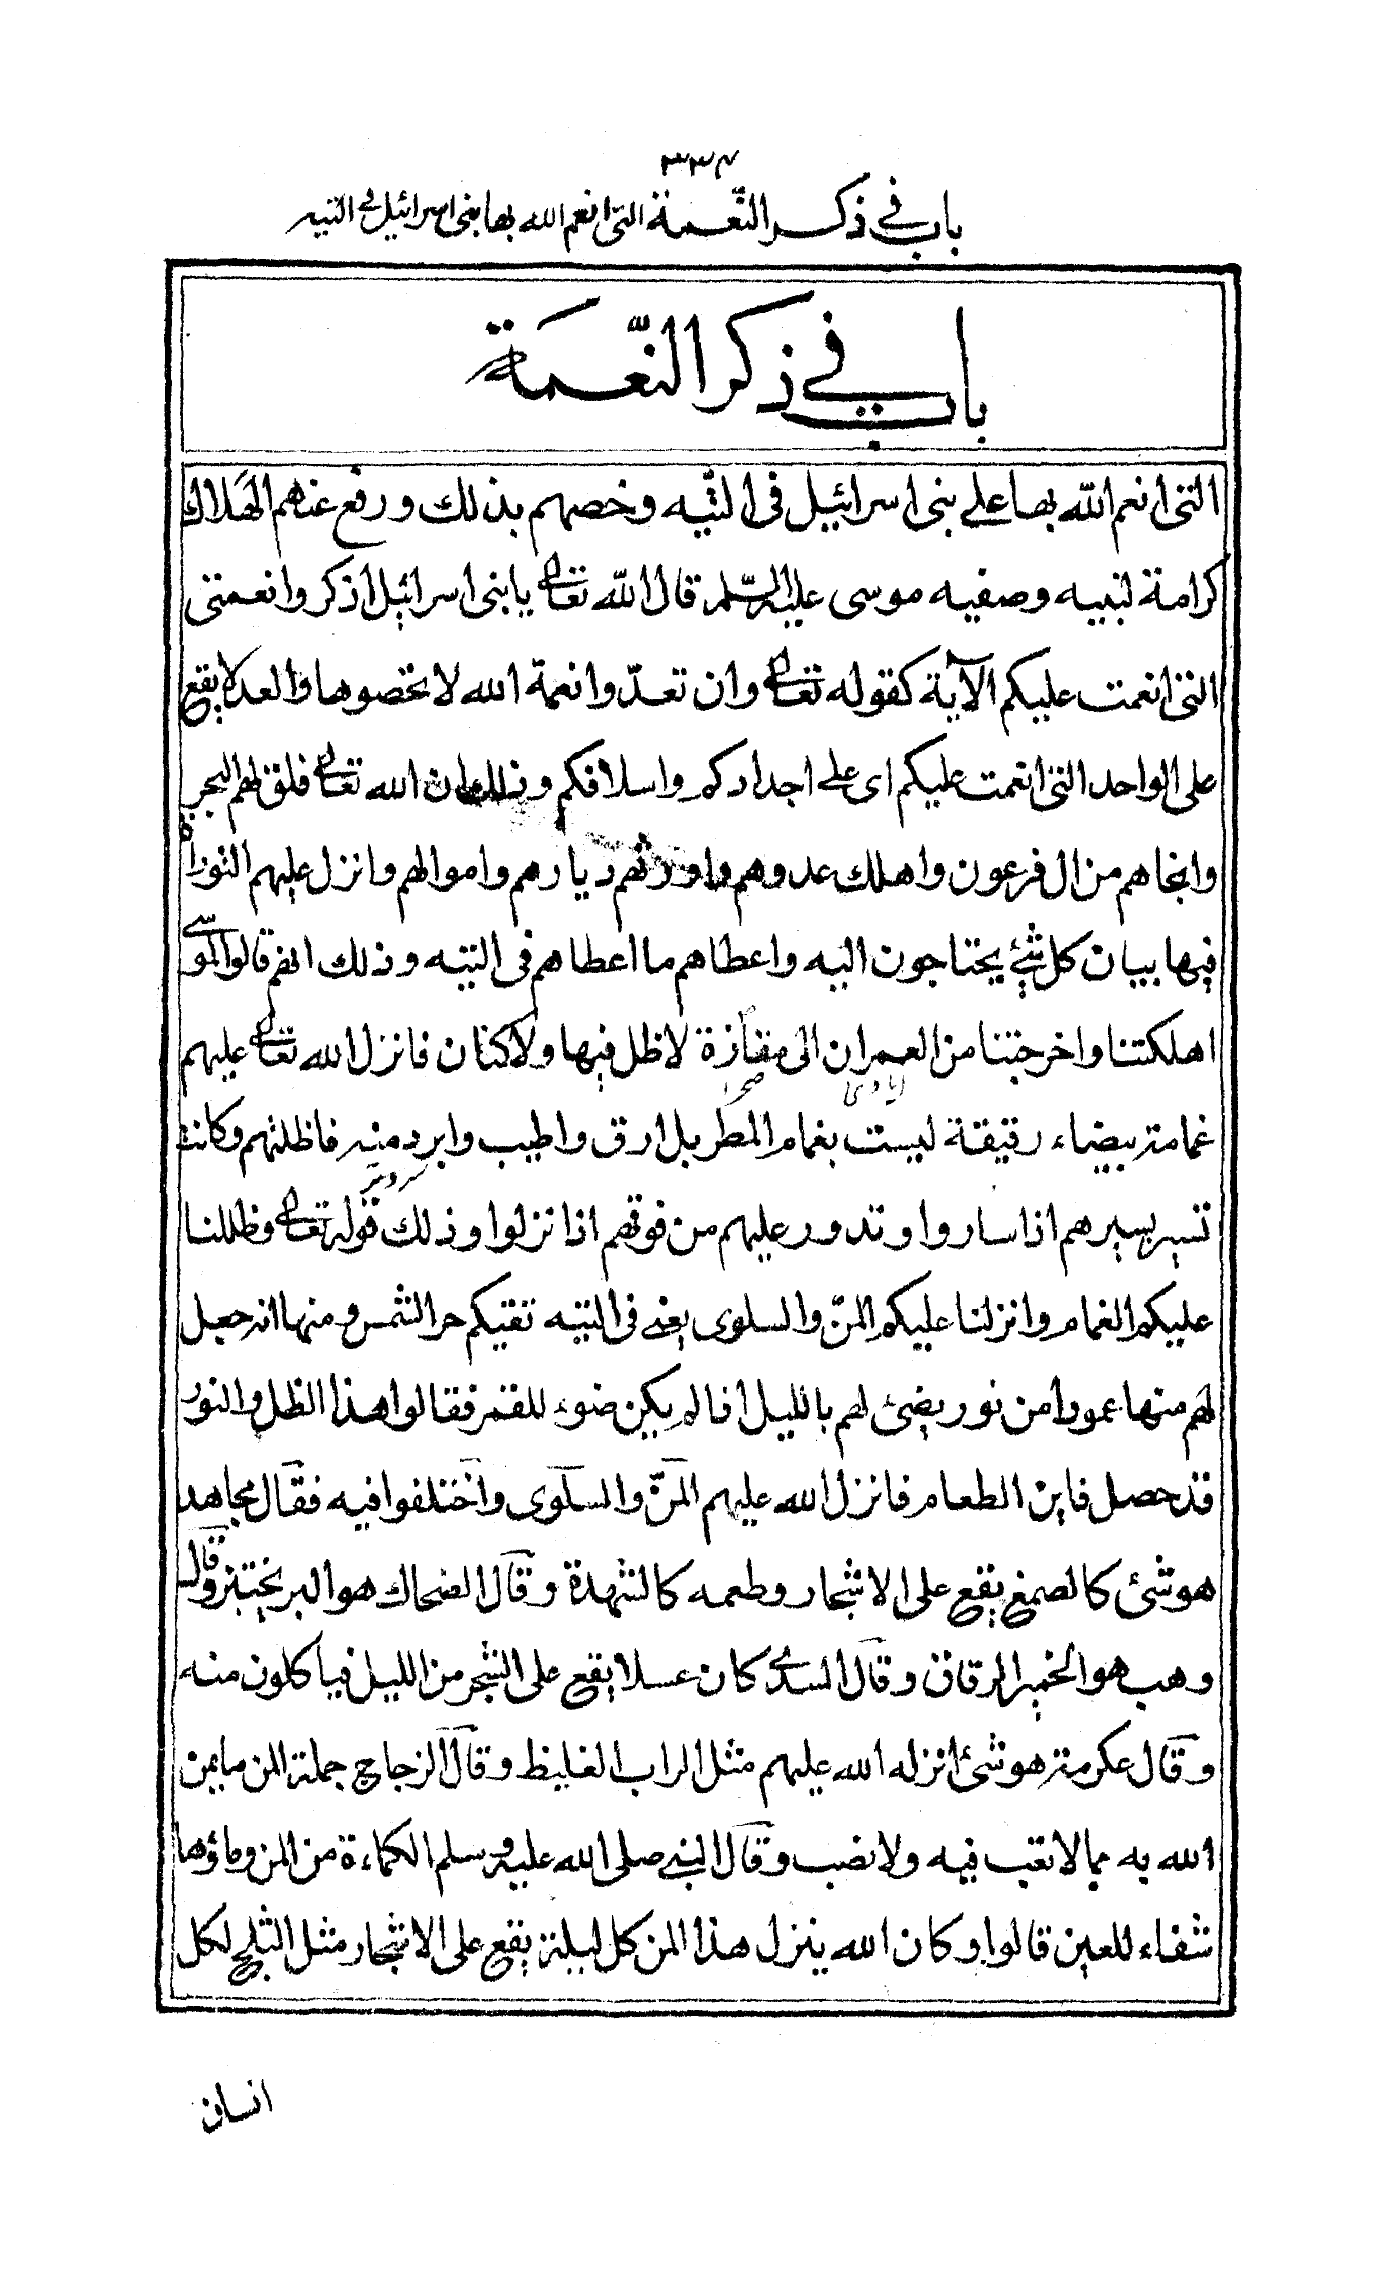 ٣٣٧
باب في ذكر النّعمة التى انعم الله بها بنى اسرائيل في التيه
باب في ذكر النّعمة
التى انعم الله بها على بنى اسرائيل فى التّيه وخصهم بذلك ورفع عنهم الهلاك
كرامة لنبيه وصفيه موسى عليه السّلم قال الله تعالى يا بنى اسرائيل اذكروا نعمتى
التى انعمت عليكم الآية كقوله تعالى وان تعدّوا نعمة الله لا تحصوها والعد لا يقع
على الواحد التى انعمت عليكم اى على اجدادكم واسلافكم وذلك ان الله تعالى فلق لهم البحر
وانجاهم من ال فرعون واهلك عدوهم واورثهم ديارهم واموالهم وانزل عليهم التوراة
فيها بيان كل شئ يحتاجون اليه واعطاهم ما اعطاهم فى التيه وذلك انهم قالوا لموسى
اهلكتنا واخرجتنا من العمران الى مفازة لا ظل فيها ولا كنان فانزل الله تعالى عليهم
غمامة بيضاء رقيقة ليست بغمام المطر بل ارق واطيب وابرد منه فاظلتهم وكانت
تسير بسيرهم اذا ساروا وتدور عليهم من فوقهم اذا نزلوا وذلك قوله تعالى وظللنا
عليكم الغمام وانزلنا عليكم المنّ والسلوى يعنى فى التيه تقيكم حر الشمس ومنها انه جعل
لهم منها عمودا من نور يضئ لهم بالليل اذا لم يكن ضوء للقمر فقالوا هذا الظل والنور
قد حصل فاين الطعام فانزل الله عليهم المنّ والسلوى واختلفوا فيه فقال مجاهد
هو شئ كالصمغ يقع على الاشجار وطعمه كالشهدة وقال الضحاك هو البر يختبز وقال
وهب هو الخبز الرقاق وقال السدى كان عسلا يقع على الشجر من الليل فياكلون منه
وقال عكرمة هو شئ انزله الله عليهم مثل الراب الغليظ وقال الزجاج جملة المن ما يمن
الله به مما لا تعب فيه ولا نصب وقال النبى صلى الله عليه وسلم الكماءة من المن وماؤها
شفاء للعين قالوا وكان الله ينزل هذا المن كل ليلة يقع على الاشجار مثل الثلج لكل
انسان